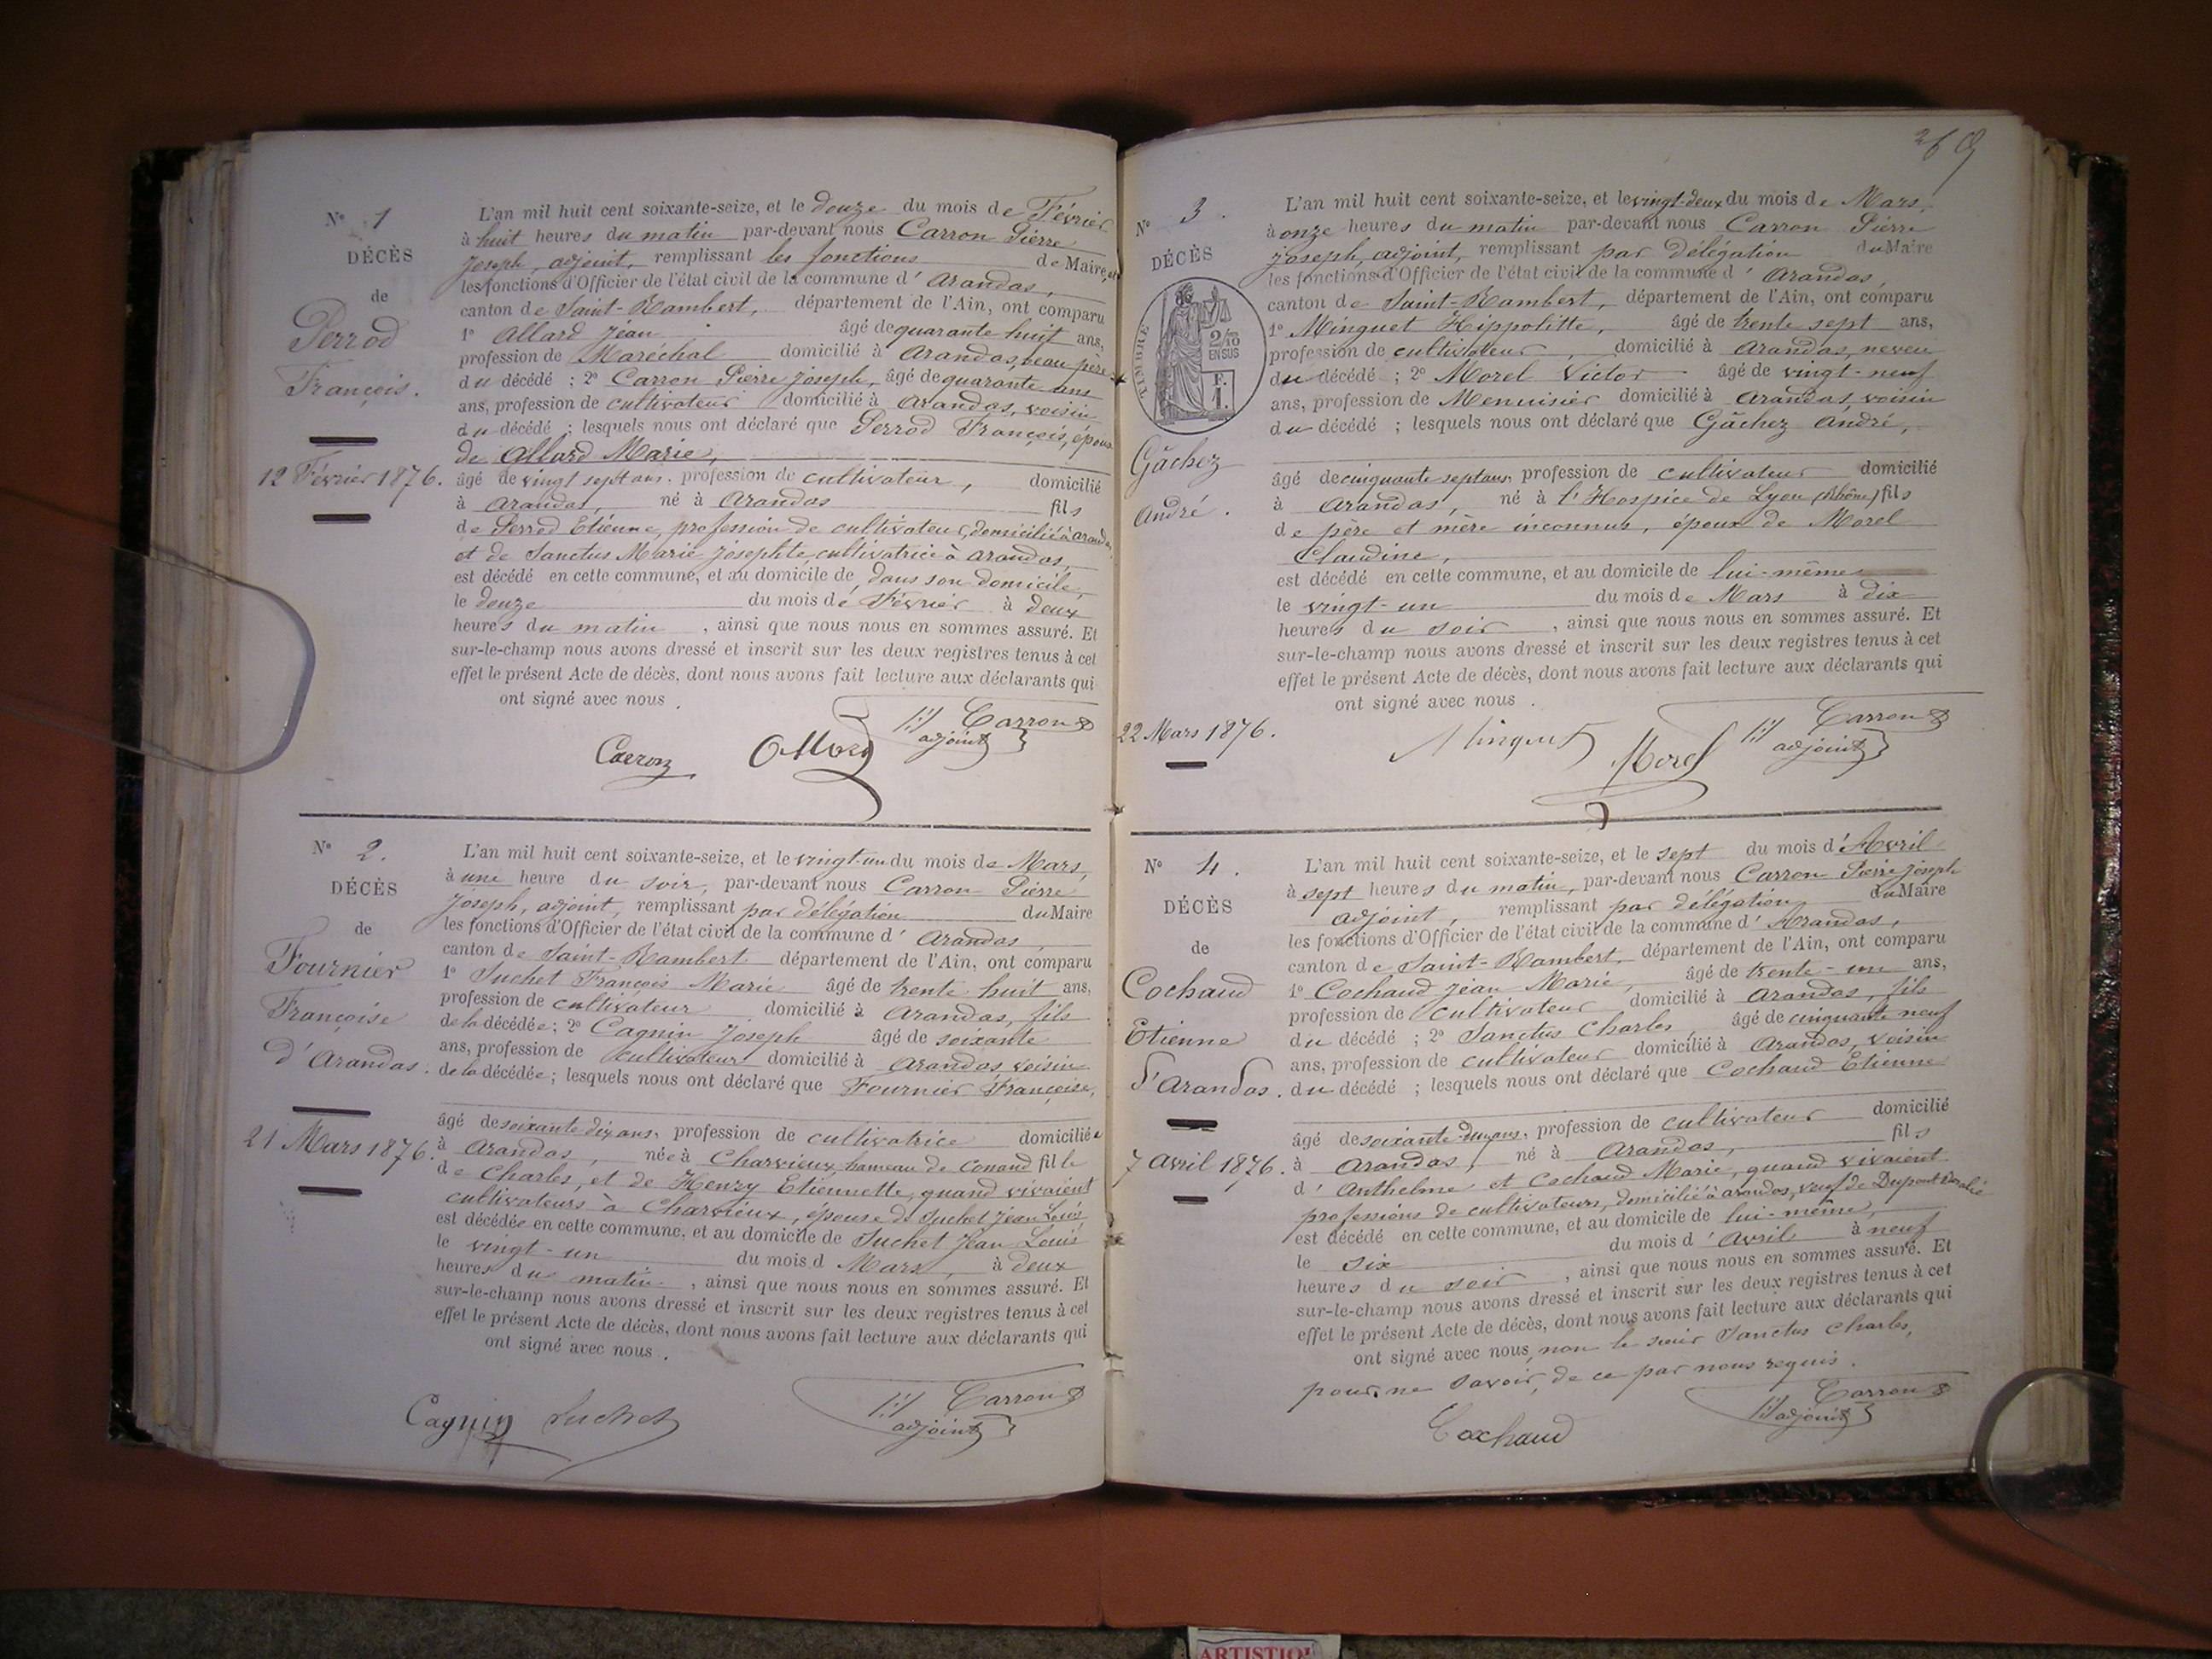 N° 1
DÉCÈS
de
Perrod
François.
12 Février 1876.
L'an mil huit cent soixante-seize, et le douze du mois de Février
à huit heures du matin par-devant nous Carron Pierre
Joseph, adjoint, remplissant les fonctions de Maire, et
les fonctions d'Officier de l'état civil de la commune d'Arandas,
canton de Saint-Rambert, département de l'Ain, ont comparu
1° Allard Jean âgé de quarante huit ans,
profession de Maréchal domicilié à Arandas, beau père
du décédé ; 2° Carron Pierre Joseph, âgé de quarante ans
ans, profession de cultivateur domicilié à Arandas, voisin
du décédé ; lesquels nous ont déclaré que Perrod François, époux
de Allard Marie,
âgé de vingt sept ans, profession de cultivateur, domicilié
à Arandas, né à Arandas fils
de Perrod Etienne, profession de cultivateur, domicilié à Arandas,
et de Sanctus Marie Josephte, cultivatrice à Arandas,
est décédé en cette commune, et au domicile de, dans son domicile,
le douze du mois de Février à deux
heures du matin, ainsi que nous nous en sommes assuré. Et
sur-le-champ nous avons dressé et inscrit sur les deux registres tenus à cet
effet le présent Acte de décès, dont nous avons fait lecture aux déclarants qui
ont signé avec nous.
Carron Allard Carron
adjoint
N° 2.
DÉCÈS
de
Fournier
Françoise
d'Arandas.
21 Mars 1876.
L'an mil huit cent soixante-seize, et le vingt-un du mois de Mars,
à une heure du soir, par-devant nous Carron Pierre
Joseph, adjoint, remplissant par délégation du Maire
les fonctions d'Officier de l'état civil de la commune d'Arandas,
canton de Saint-Rambert département de l'Ain, ont comparu
1° Suchet François Marie âgé de trente huit ans,
profession de cultivateur domicilié à Arandas, fils
de la décédée ; 2° Cagnin Joseph âgé de soixante
ans, profession de cultivateur domicilié à Arandas voisin
de la décédée ; lesquels nous ont déclaré que Fournier Françoise,
âgé de soixante dix ans, profession de cultivatrice domiciliée
à Arandas, née à Charvieux, hameau de Conand fille
de Charles, et de Henry Etiennette, quand vivaient
cultivateurs à Charvieux, épouse de Suchet Jean Louis
est décédée en cette commune, et au domicile de Suchet Jean Louis
le vingt-un du mois d Mars, à deux
heures du matin, ainsi que nous nous en sommes assuré. Et
sur-le-champ nous avons dressé et inscrit sur les deux registres tenus à cet
effet le présent Acte de décès, dont nous avons fait lecture aux déclarants qui
ont signé avec nous.
Cagnin Suchet Carron
adjoint
269
N° 3.
DÉCÈS
TIMBRE
2/10
EN SUS
F.
1.
Gâchez
André.
22 Mars 1876.
L'an mil huit cent soixante-seize, et le vingt-deux du mois de Mars,
à onze heures du matin par-devant nous Carron Pierre
Joseph, adjoint, remplissant par délégation du Maire
les fonctions d'Officier de l'état civil de la commune d'Arandas,
canton de Saint-Rambert, département de l'Ain, ont comparu
1° Minguet Hippolitte, âgé de trente sept ans,
profession de cultivateur, domicilié à Arandas, neveu
du décédé ; 2° Morel Victor âgé de vingt-neuf
ans, profession de Menuisier domicilié à Arandas, voisin
du décédé ; lesquels nous ont déclaré que Gâchez André,
âgé de cinquante sept ans, profession de cultivateur domicilié
à Arandas, né à l'Hospice de Lyon (Rhône) fils
de père et mère inconnus, époux de Morel
Claudine,
est décédé en cette commune, et au domicile de lui-même
le vingt-un du mois de Mars à dix
heures du soir, ainsi que nous nous en sommes assuré. Et
sur-le-champ nous avons dressé et inscrit sur les deux registres tenus à cet
effet le présent Acte de décès, dont nous avons fait lecture aux déclarants qui
ont signé avec nous.
Minguet Morel Carron
adjoint
N° 4.
DÉCÈS
de
Cochaud
Etienne
d'Arandas.
7 Avril 1876.
L'an mil huit cent soixante-seize, et le sept du mois d'Avril
à sept heures du matin, par-devant nous Carron Pierre Joseph
adjoint, remplissant par délégation du Maire
les fonctions d'Officier de l'état civil de la commune d'Arandas,
canton de Saint-Rambert, département de l'Ain, ont comparu
1° Cochaud Jean Marie, âgé de trente-un ans,
profession de cultivateur domicilié à Arandas, fils
du décédé ; 2° Sanctus Charles, âgé de cinquante neuf
ans, profession de cultivateur domicilié à Arandas, voisin
du décédé ; lesquels nous ont déclaré que Cochaud Etienne
âgé de soixante-      ans, profession de cultivateur domicilié
à Arandas, né à Arandas, fils
d'Anthelme et Cochaud Marie, quand vivaient
professions de cultivateurs, domicilié à Arandas, veuf de Dupont Rosalie
est décédé en cette commune, et au domicile de lui-même,
le six du mois d'Avril à neuf
heures du soir, ainsi que nous nous en sommes assuré. Et
sur-le-champ nous avons dressé et inscrit sur les deux registres tenus à cet
effet le présent Acte de décès, dont nous avons fait lecture aux déclarants qui
ont signé avec nous, non le sieur Sanctus Charles,
pour ne savoir, de ce par nous requis.
Cochaud Carron
adjoint